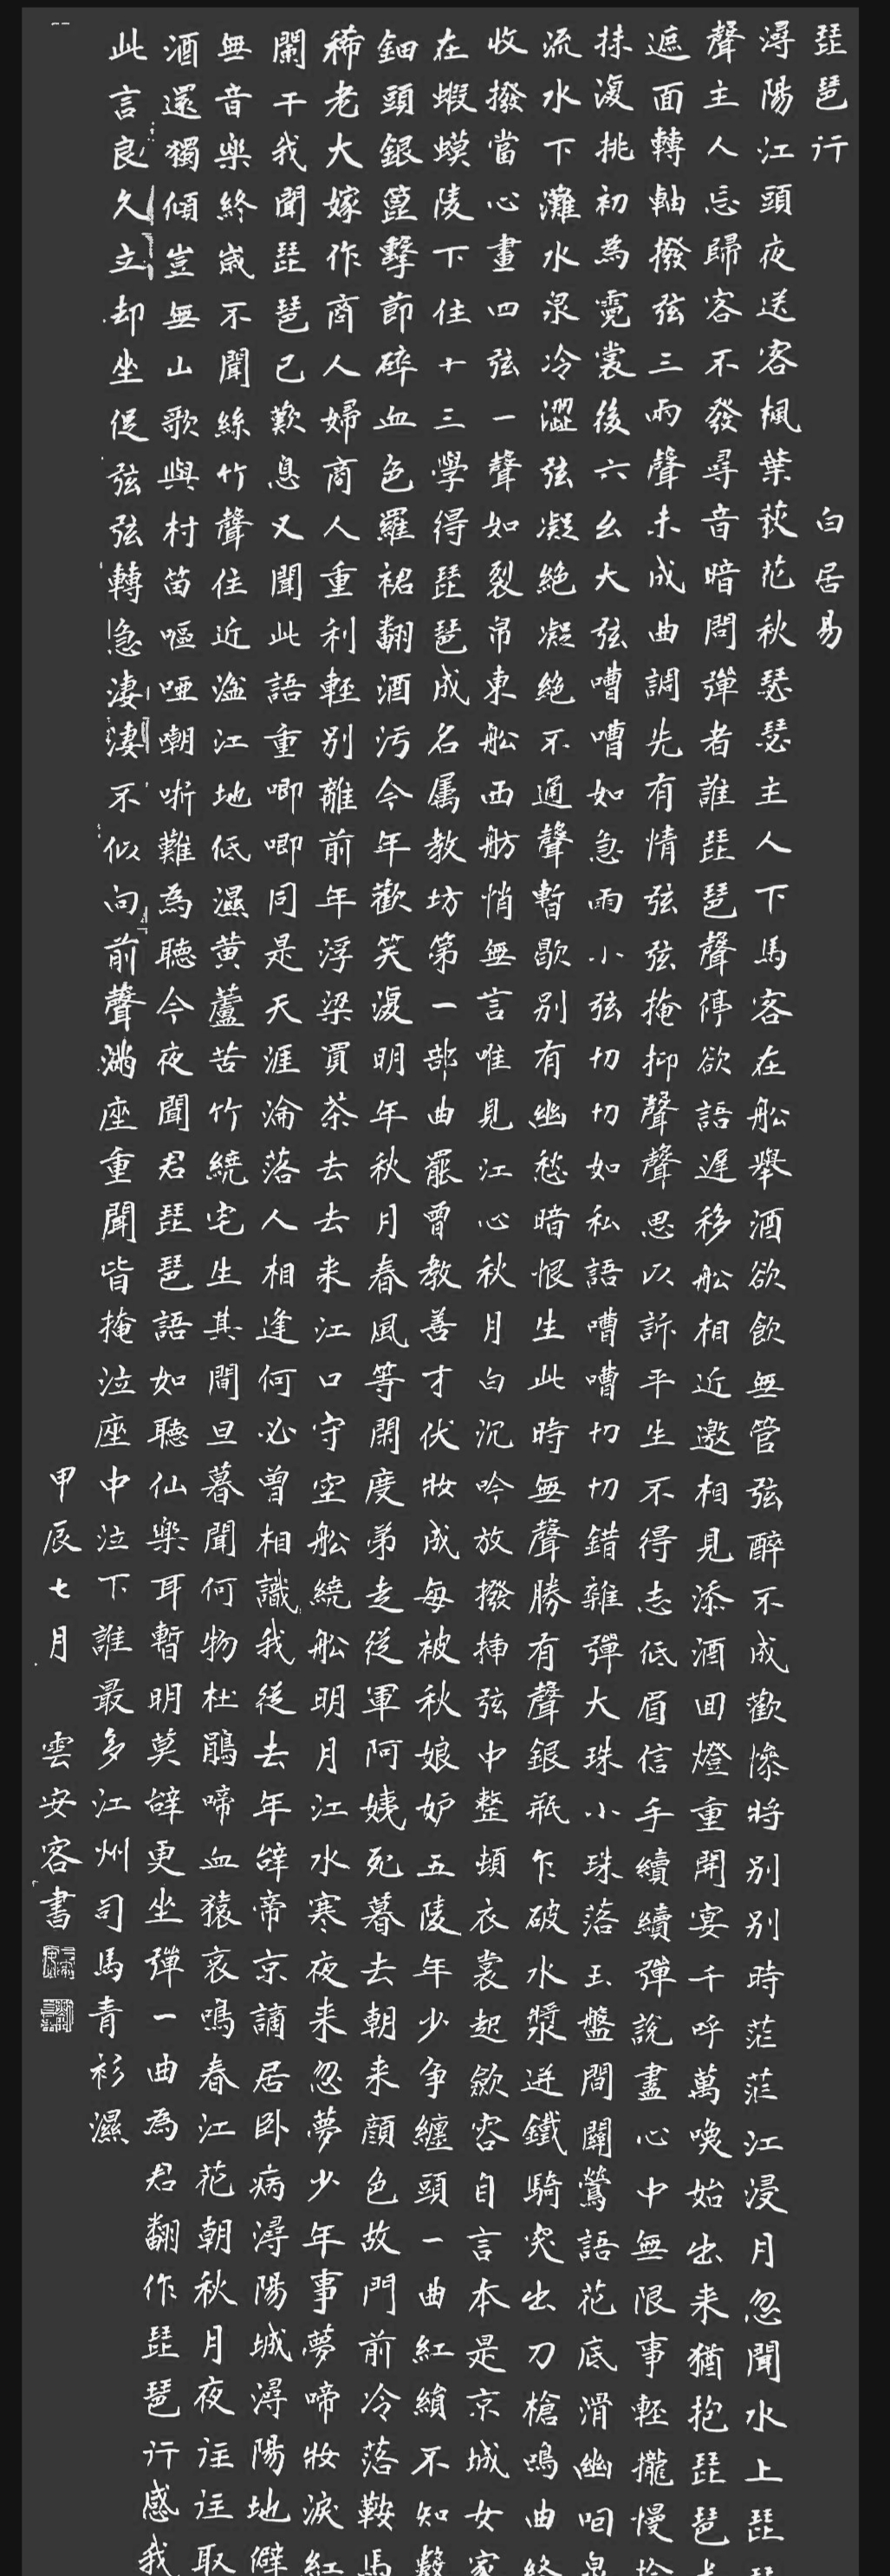 琵琶行 白居易
潯陽江頭夜送客楓葉荻花秋瑟瑟主人下馬客在船舉酒欲飲無管弦醉不成歡慘將別別時茫茫江浸月忽聞水上琵
聲主人忘歸客不發尋音暗問彈者誰琵琶聲停欲語遲移船相近邀相見添酒回燈重開宴千呼萬喚始出來猶抱琵琶
遮面轉軸撥弦三兩聲未成曲調先有情弦弦掩抑聲聲思以訴平生不得志低眉信手續續彈說盡心中無限事輕攏慢
抹復挑初為霓裳後六幺大弦嘈嘈如急雨小弦切切如私語嘈嘈切切錯雜彈大珠小珠落玉盤間關鶯語花底滑幽咽泉
流水下灘水泉冷澀弦凝絕凝絕不通聲暫歇別有幽愁暗恨生此時無聲勝有聲銀瓶乍破水漿迸鐵騎突出刀槍鳴曲終
收撥當心畫四弦一聲如裂帛東船西舫悄無言唯見江心秋月白沉吟放撥插弦中整頓衣裳起斂容自言本是京城女家
在蝦蟆陵下住十三學得琵琶成名屬教坊第一部曲罷曾教善才伏妝成每被秋娘妒五陵年少爭纏頭一曲紅綃不知數
鈿頭銀篦擊節碎血色羅裙翻酒污今年歡笑復明年秋月春風等閑度弟走從軍阿姨死暮去朝來顏色故門前冷落鞍馬
稀老大嫁作商人婦商人重利輕別離前年浮梁買茶去去來江口守空船繞船明月江水寒夜來忽夢少年事夢啼妝淚紅
闌干我聞琵琶已歎息又聞此語重唧唧同是天涯淪落人相逢何必曾相識我從去年辭帝京謫居臥病潯陽城潯陽地僻
無音樂終歲不聞絲竹聲住近湓江地低濕黃蘆苦竹繞宅生其間旦暮聞何物杜鵑啼血猿哀鳴春江花朝秋月夜往往取
酒還獨傾豈無山歌與村笛嘔啞嘲哳難為聽今夜聞君琵琶語如聽仙樂耳暫明莫辭更坐彈一曲為君翻作琵琶行感我
此言良久立却坐促弦弦轉急淒淒不似向前聲滿座重聞皆掩泣座中泣下誰最多江州司馬青衫濕
甲辰七月 雲安容書